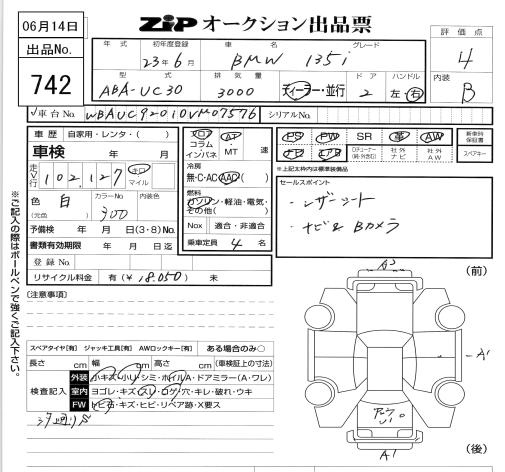 06月14日
出品No.
742
ZIP オークション出品票
評価点
4
内装
B
年式 初年度登録 車名 グレード
23年6月 BMW 135i
型式 排気量 ドア ハンドル
ABA-UC30 3000 ディーラー・並行 2 左 右
車台No. WBAUC92010VM07576 シリアルNo.
車歴 自家用・レンタ・( )
車検 年 月
走行 102,127 キロ マイル
色 (元色) 白 カラーNo. 300 内装色
予備検 年 月 日(3・8)No.
書類有効期限 年 月 日迄
登録No.
リサイクル料金 有(¥18,050) 未
フロア コラム インパネ AT・MT 速
冷房
無・C・AC・AAC
燃料
ガソリン・軽油・電気・その他( )
Nox 適合・非適合
乗車定員 4 名
PS PW SR 革 AW
社外ナビ 社外AW
新車時保証書
スペアキー
※上記太枠内は標準装備品
セールスポイント
・レザーシート
・ナビ&Bカメラ
(注意事項)
スペアタイヤ[有] ジャッキ工具[有] AWロックキー[有] ある場合のみ○
長さ cm 幅 cm 高さ cm (車検証上の寸法)
検査記入
外装 小キズ・小凹・シミ・ホイルA・ドアミラー(A・ワレ)
室内 ヨゴレ・キズ・スレ・コゲ・穴・キレ・破れ・ウキ
FW トビ石・キズ・ヒビ・リペア跡・X要ス
※ご記入の際はボールペンで強くご記入下さい。
(前)
A1
(後)